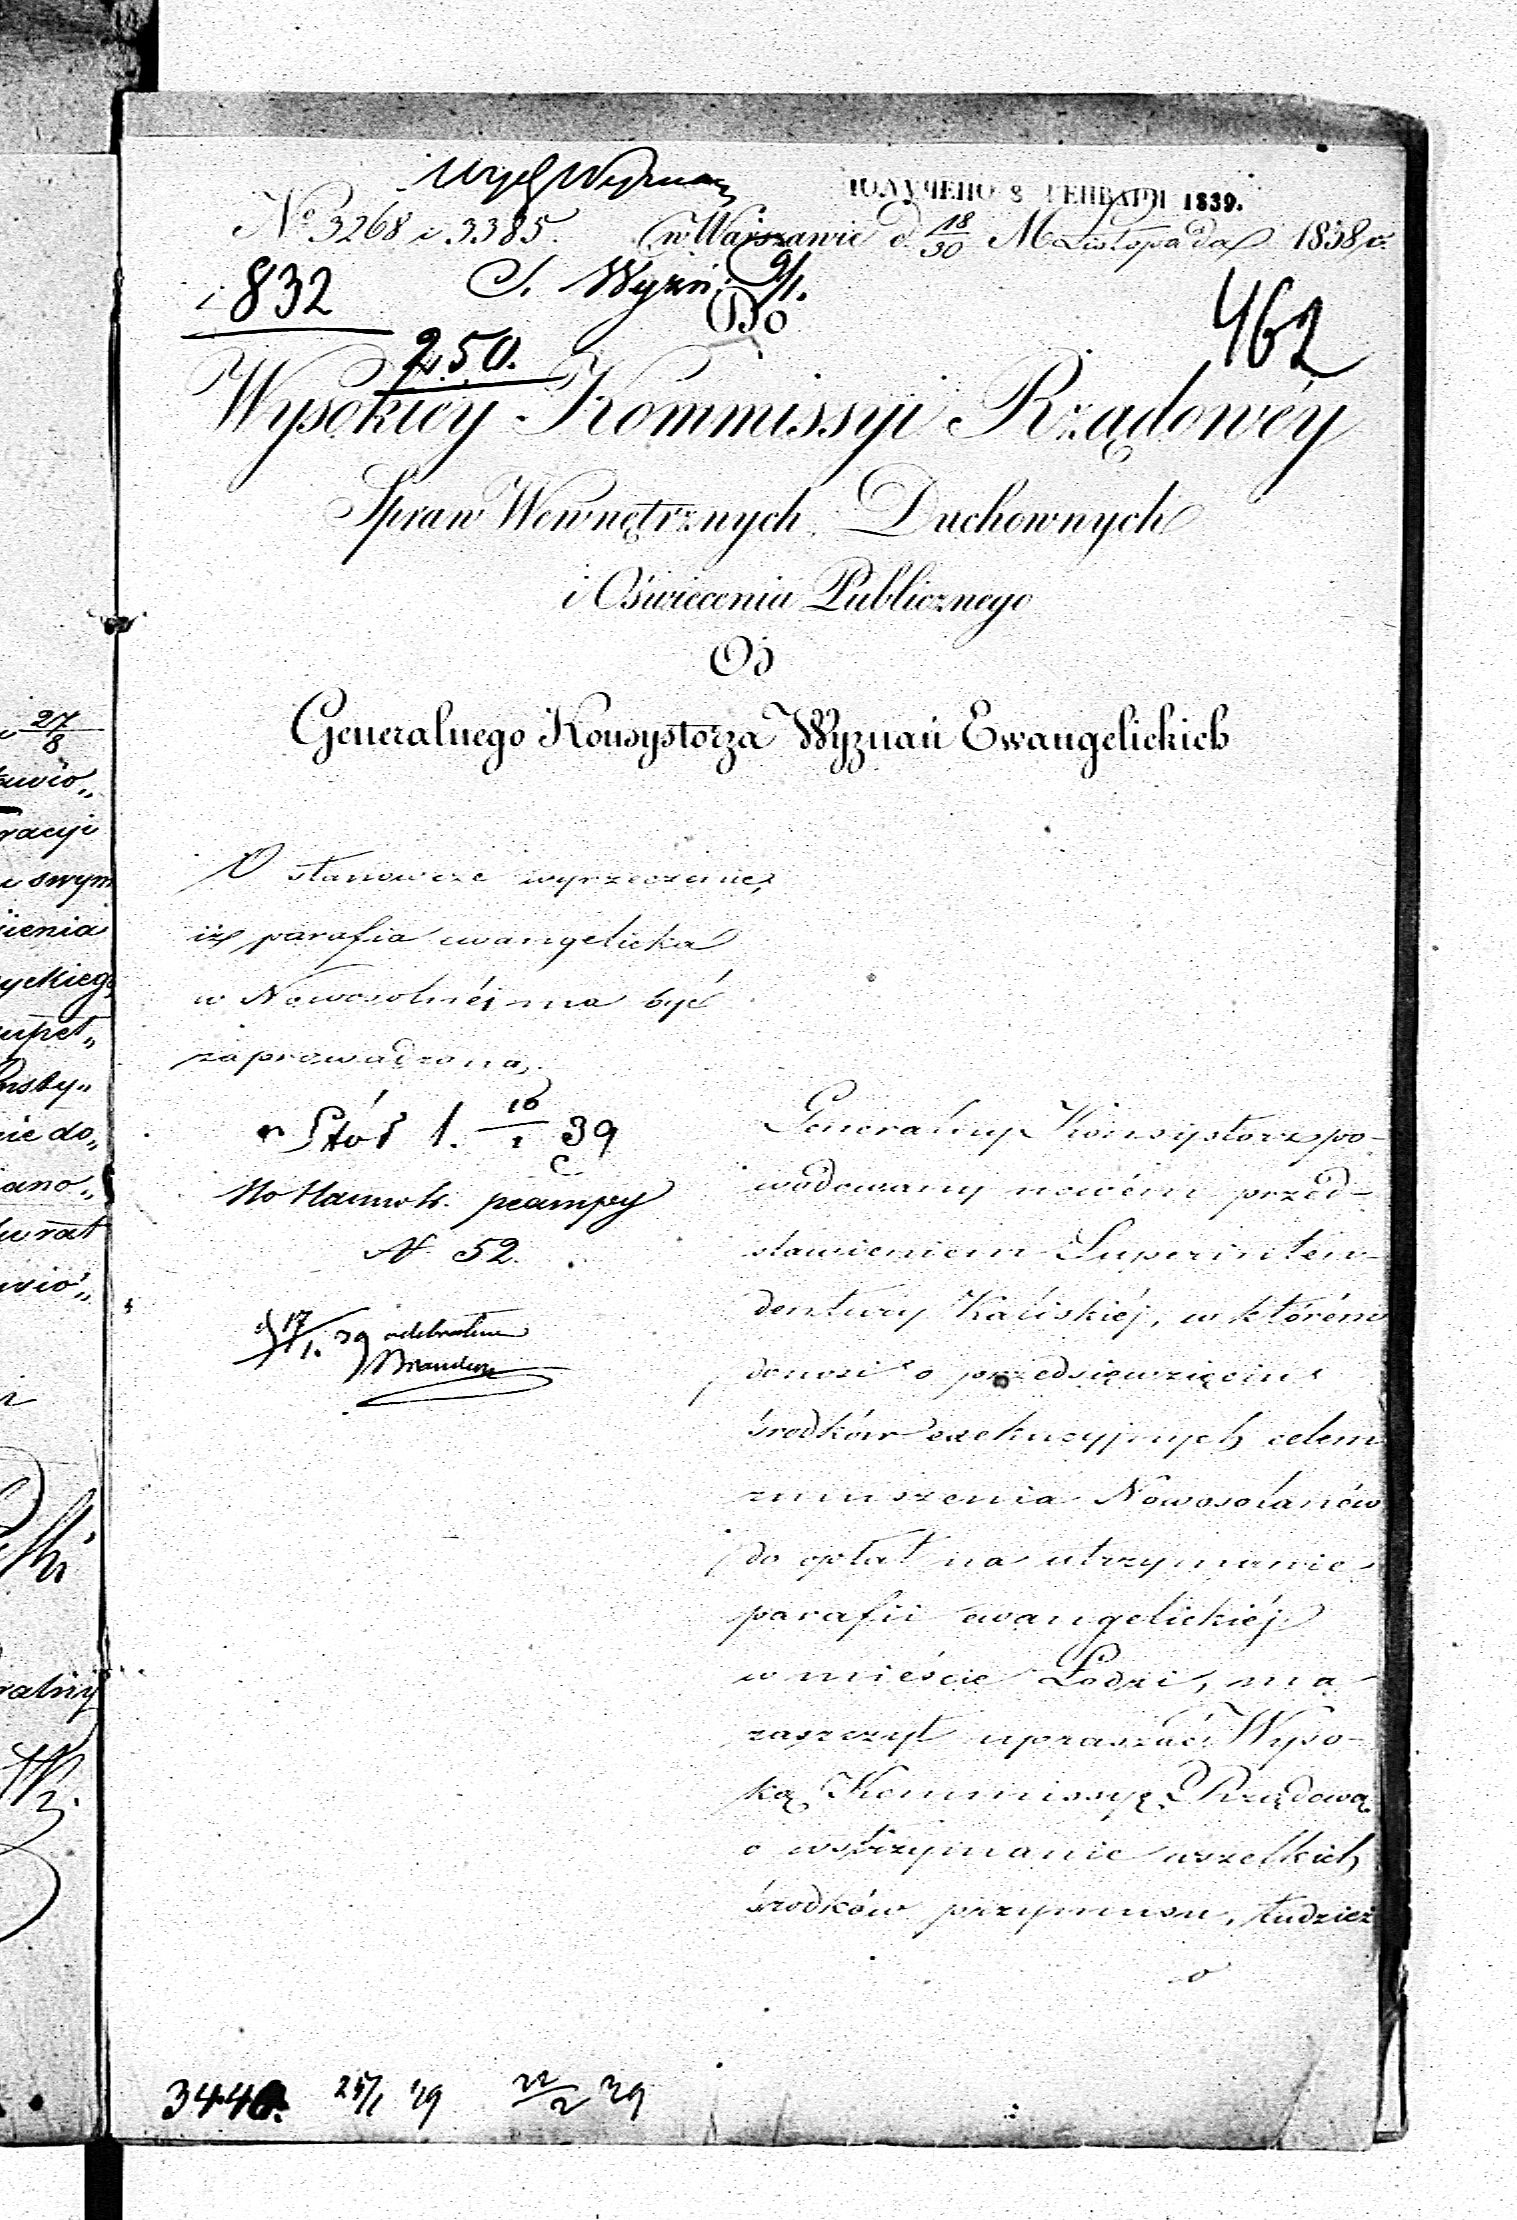 ПОЛУЧЕНО 8 ГЕНВАРЯ 1839.
No 3268 i 3385. w Warszawie d. 18/30 M Listopada 1838 r.
i 832
S. Wyzn. 9/1.
462
250.
Do
Wysokiey Kommissyi Rządowéy
Spraw Wewnętrznych, Duchownych
i Oświecenia Publicznego
Od
Generalnego Konsystorza Wyznań Ewangelickich
O stanowcze wyrzeczenie,
iż parafia ewangelicka
w Nowosolnéj ma być
zaprowadzona.
1. 16/1 39
N 52.
d 17/1. 39 odebrałem
Generalny Konsystorz po-
wodowany nowém przed-
stawieniem Superinten-
dentury Kaliskiéj, w którém
donosi o przedsięwzięciu
środków exekucyjnych celem
zmuszenia Nowosolanów
do opłat na utrzymanie
parafii ewangelickiéj
w mieście Łodzi, ma
zaszczyt upraszać Wyso-
ką Kommissyę Rządową
o wstrzymanie wszelkich
środków przymusu, tudzież
o
3440. 25/1 39 22/2 39
27/8
racyi
swym
ienia
yckiego
upeł„
nie do„
ano„
ralny